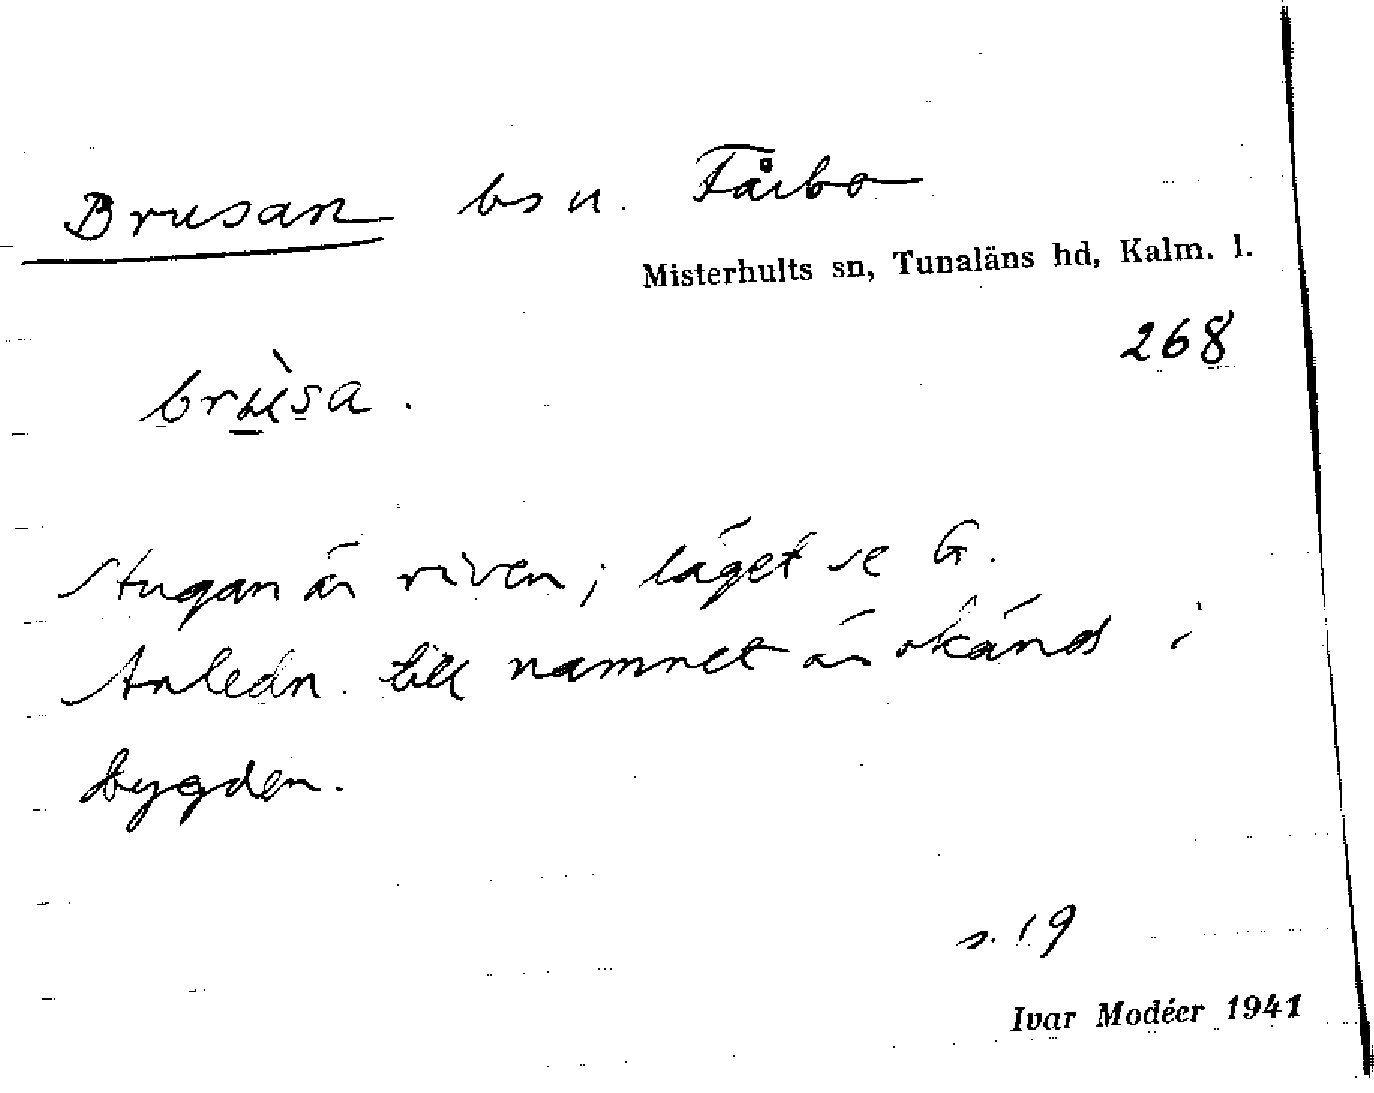 Brusan bs u. Fårbo
Misterhults sn, Tunaläns hd, Kalm. l.
268
brùsa.
Stugan är riven; läget se G.
Anledn. till namnet är okänd i
bygden.
s. 19
Ivar Modéer 1941